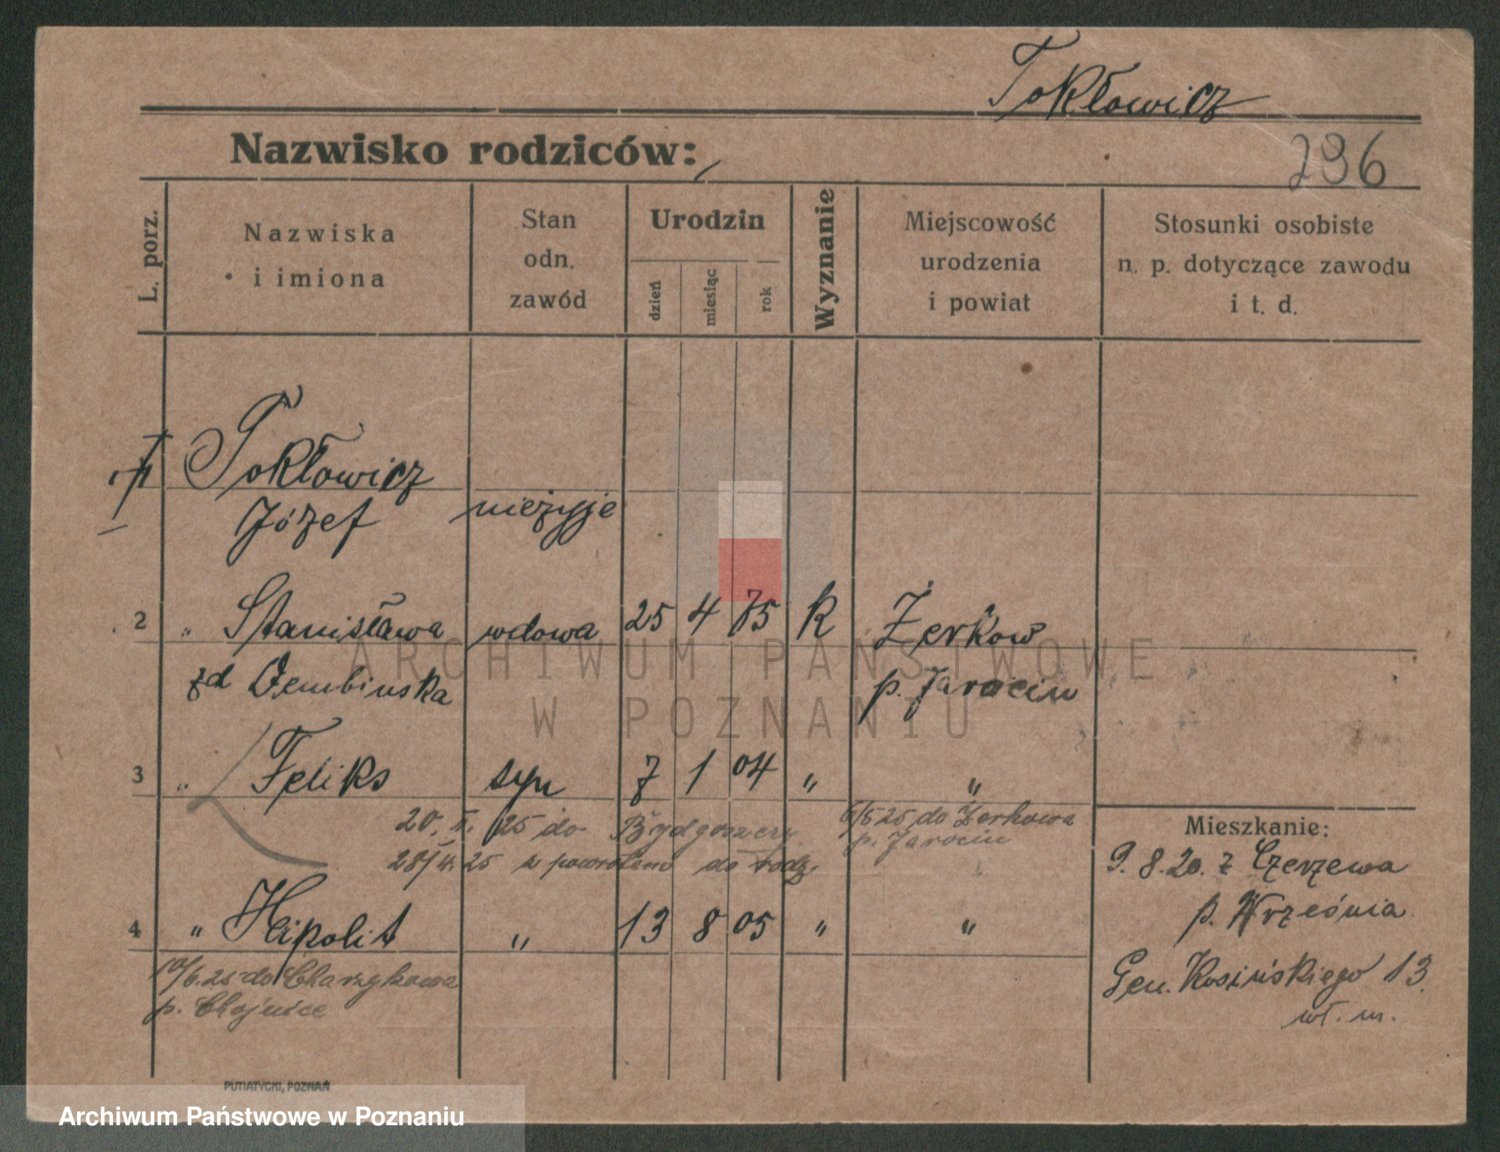 Tokłowicz
Nazwisko rodziców:
296
L. porz.
Nazwiska
i imiona
Stan
odn.
zawód
Urodzin
dzień
miesiąc
rok
Wyznanie
Miejscowość
urodzenia
i powiat
Stosunki osobiste
n. p. dotyczące zawodu
i t. d.
Tokłowicz
Józef nieżyje
2 " Stanisława wdowa 25 4 75 k Żerków
zd Dembinska p. Jarocin
3 " Feliks syn 7 1 04 " "
20. 25 do Bydgoszczy 6/5 25 do Żerkowa
25 z powrotem do rodz. p. Jarocin
Mieszkanie:
9. 8. 20. z Czerzewa
p. Września
4 " Hipolit " 13 8 05 " "
10/6. 25 do Charzykowa
p. Chojnice
Gen. Kosińskiego 13.
wł. m.
PUTIATYCKI, POZNAŃ
ARCHIWUM PAŃSTWOWE
W POZNANIU
Archiwum Państwowe w Poznaniu